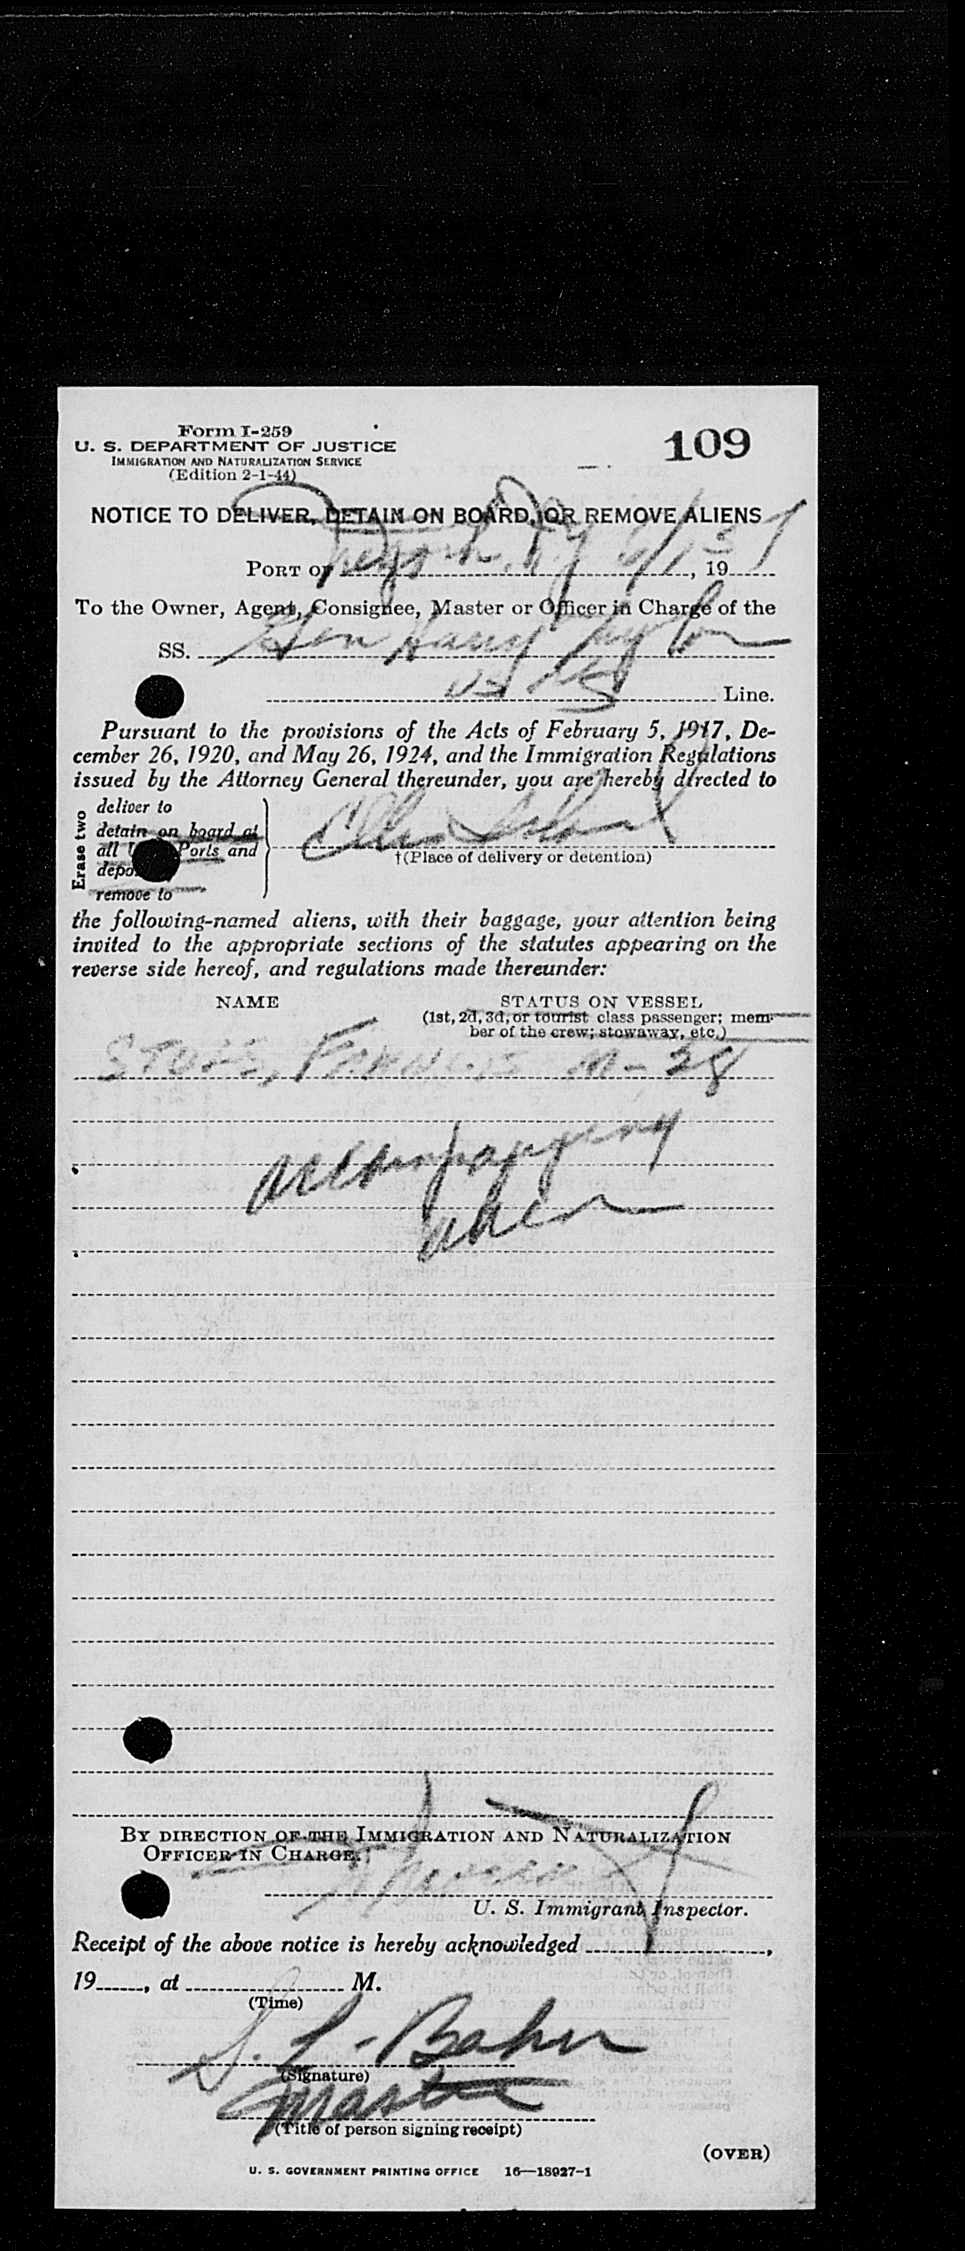 Form I-259
U. S. DEPARTMENT OF JUSTICE
IMMIGRATION AND NATURALIZATION SERVICE
(Edition 2-1-44)
109
NOTICE TO DELIVER, DETAIN ON BOARD, OR REMOVE ALIENS
PORT OF N.Y., 19
To the Owner, Agent, Consignee, Master or Officer in Charge of the
SS. Gen Harry Taylor
Line.
Pursuant to the provisions of the Acts of February 5, 1917, De-
cember 26, 1920, and May 26, 1924, and the Immigration Regulations
issued by the Attorney General thereunder, you are hereby directed to
Erase two
deliver to
detain on board at
all Ports and
remove to
Ellis Island
†(Place of delivery or detention)
the following-named aliens, with their baggage, your attention being
invited to the appropriate sections of the statutes appearing on the
reverse side hereof, and regulations made thereunder:
NAME
STATUS ON VESSEL
(1st, 2d, 3d, or tourist class passenger; mem-
ber of the crew; stowaway, etc.)
M-28
accompanying
alien
BY DIRECTION OF THE IMMIGRATION AND NATURALIZATION
OFFICER IN CHARGE.
U. S. Immigrant Inspector.
Receipt of the above notice is hereby acknowledged ,
19 , at M.
(Time)
Baker
(Signature)
Master
(Title of person signing receipt)
(OVER)
U. S. GOVERNMENT PRINTING OFFICE 16—18927-1